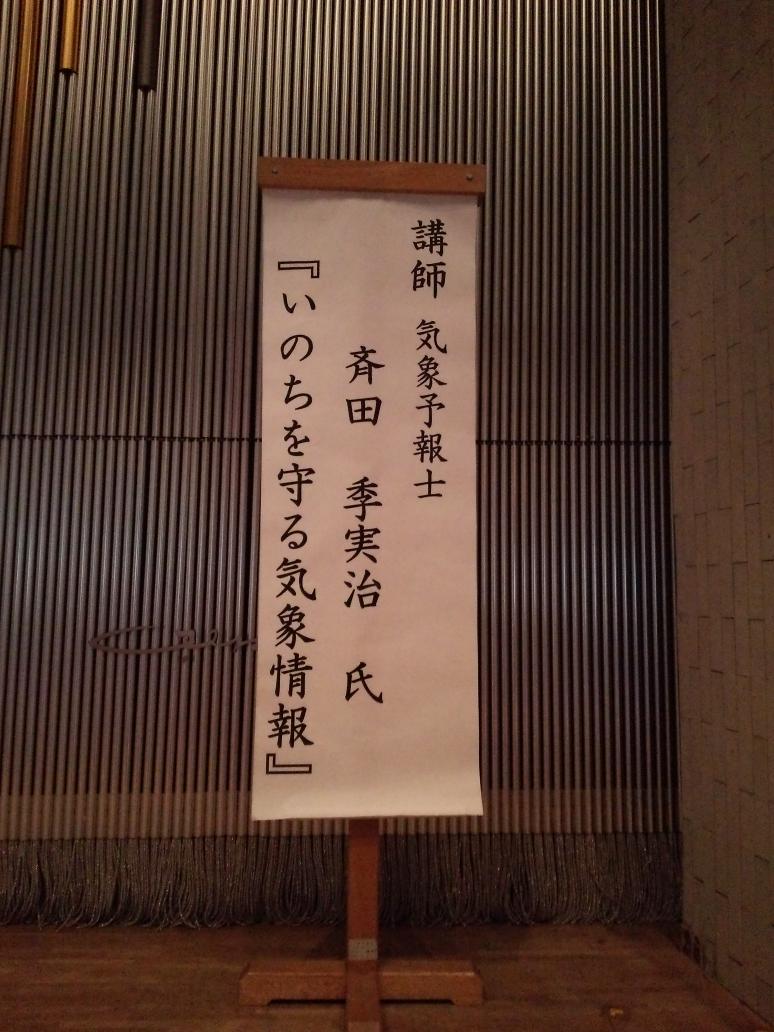 講師 気象予報士
斉田 季実治 氏
『いのちを守る気象情報』